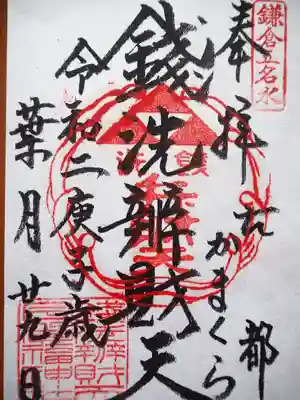 鎌倉五名水
奉拝
古都
かまくら
銭洗辨財天
令和二庚子歳
葉月廿九日